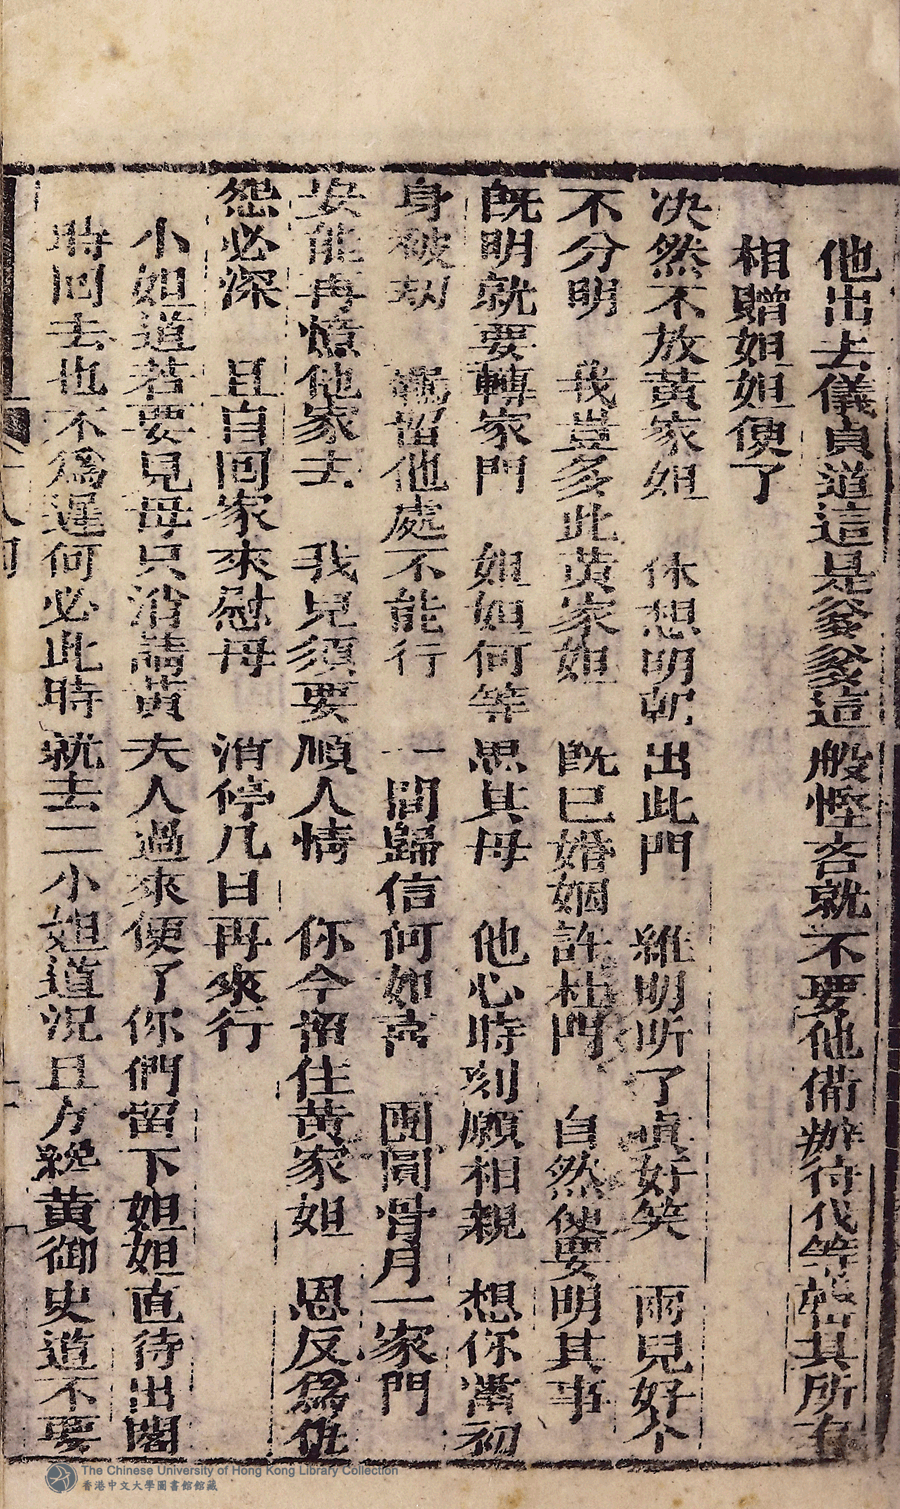 他出去儀貞道這是爹爹這般慳吝就不要他備辦待我等罄其所有
相贈姐姐便了
决然不放黃家姐　休想明朝出此門　維明听了真好笑　兩兒好个
不分明　我豈多此黃家姐　既已婚姻許杜門　自然使要明其事
既明就要轉家門　姐姐何等思其母　他心時刻願相親　想你當初
身被劫　覊留他處不能行　一聞歸信何如喜　團圓骨月一家門
安能再燎他家去　我兒須要順人情　你今留住黃家姐　恩反爲仇
怨必深　且自回家來慰母　消停几日再來行
小姐道若要見母只消請黃夫人過來便了你們留下姐姐直待出閣
時回去也不爲遲何必此時就去二小姐道況且方纔黃御史道不要
The Chinese University of Hong Kong Library Collection
香港中文大學圖書館館藏